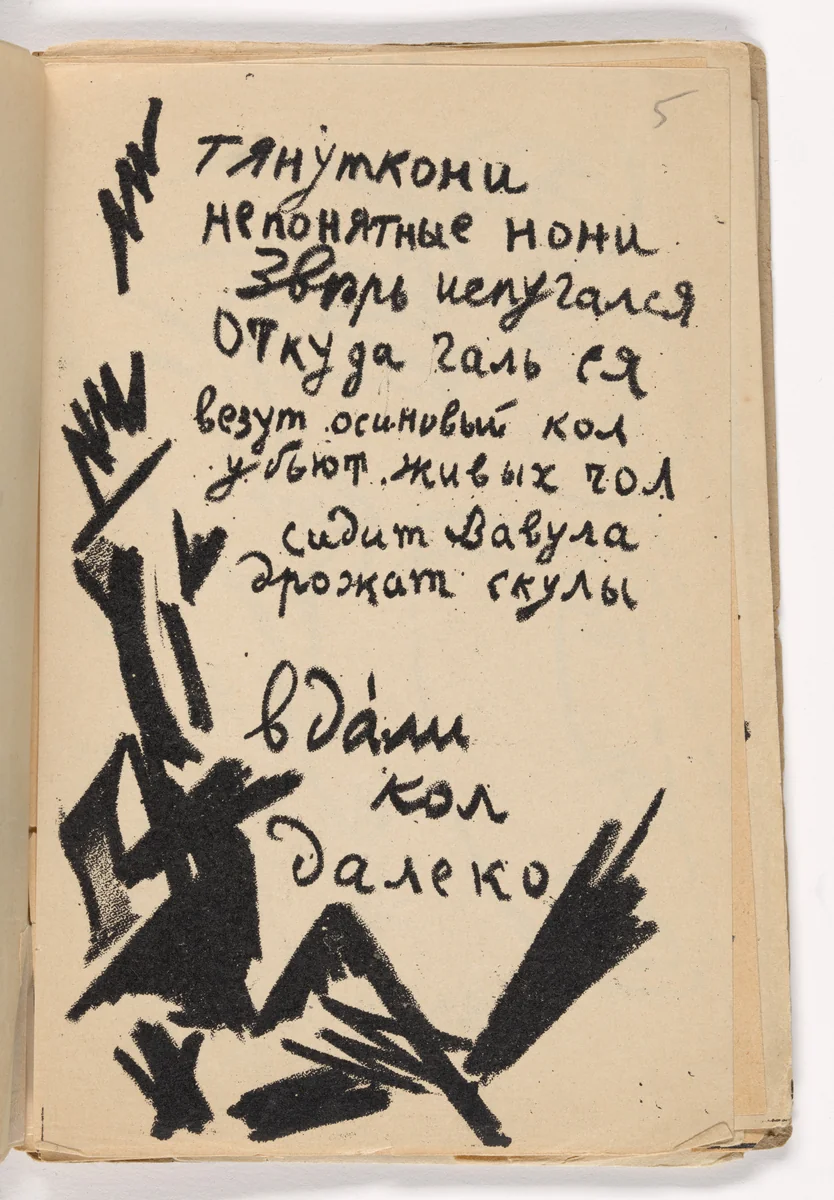 5
тяну́ткони
непонятные нони
Звѣрь испугался
Откуда галь ся
везут осиновый кол
убьют живых чол
сидит Вавула
дрожат скулы
вда́ли
кол
далеко